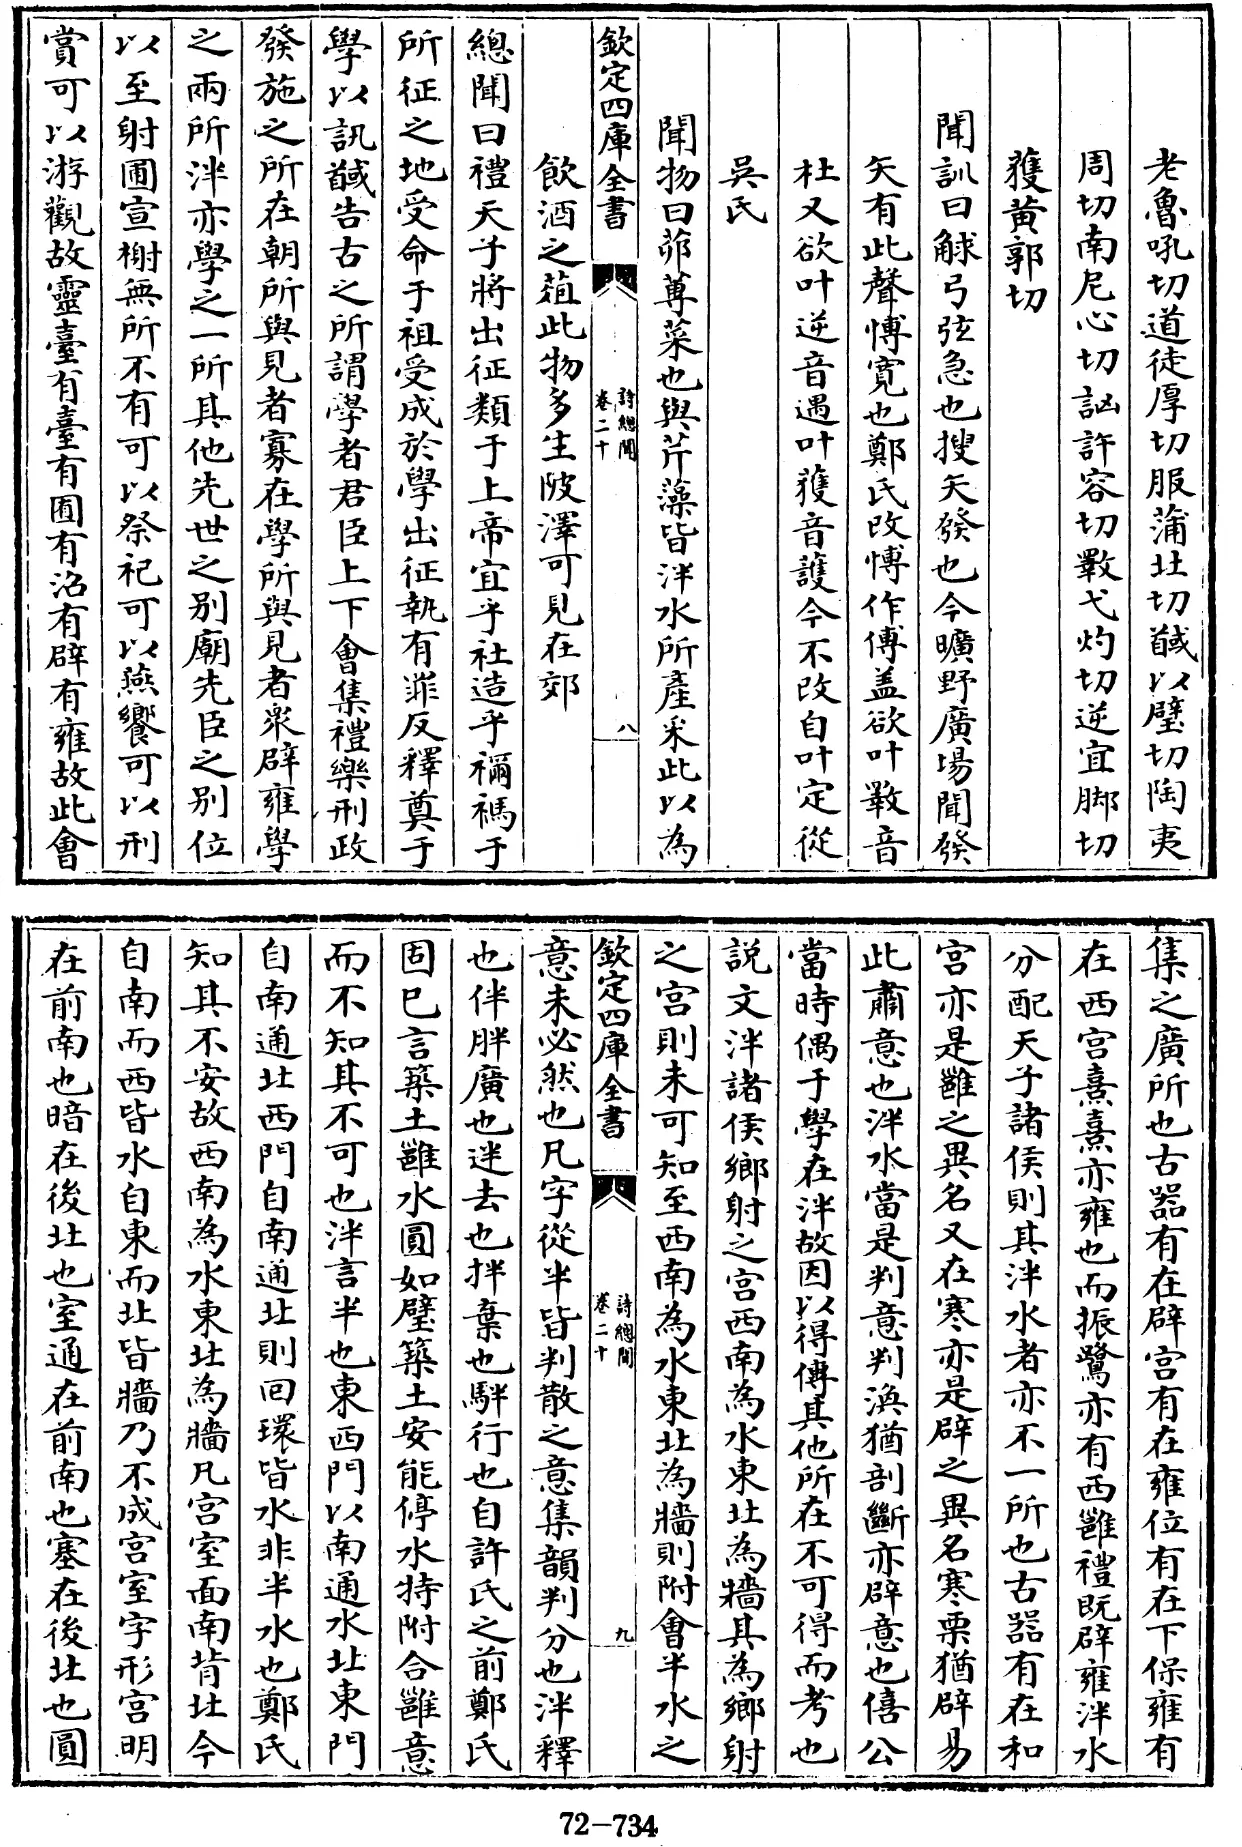 老魯吼切道徒厚切服蒲北切馘以璧切陶夷
周切南尼心切訩許容切斁弋灼切逆宜脚切
獲黄郭切
聞訓曰觩弓弦急也搜矢發也今曠野廣場聞發
矢有此聲愽寛也鄭氏改愽作傅盖欲叶斁音
杜又欲叶逆音遇叶獲音䕶今不改自叶定從
吳氏
聞物曰茆蓴菜也與芹藻皆泮水所產采此以為
欽定四庫全書
詩總聞
卷二十
八
飲酒之葅此物多生陂澤可見在郊
總聞曰禮天子將出征類于上帝宜乎社造乎禰禡于
所征之地受命于祖受成於學出征執有罪反釋奠于
學以訊馘告古之所謂學者君臣上下會集禮樂刑政
發施之所在朝所與見者寡在學所與見者衆辟雍學
之兩所泮亦學之一所其他先世之別廟先臣之別位
以至射圃宣榭無所不有可以祭祀可以燕饗可以刑
賞可以游觀故靈臺有臺有囿有沼有辟有雍故此會
集之廣所也古器有在辟宫有在雍位有在下保雍有
在西宫熹熹亦雍也而振鷺亦有西雝禮既辟雍泮水
分配天子諸侯則其泮水者亦不一所也古器有在和
宫亦是雝之異名又在寒亦是辟之異名寒栗猶辟易
此肅意也泮水當是判意判渙猶剖斷亦辟意也僖公
當時偶于學在泮故因以得傳其他所在不可得而考也
説文泮諸侯鄉射之宫西南為水東北為牆其為鄉射
之宫則未可知至西南為水東北為牆則附會半水之
欽定四庫全書
詩總聞
卷二十
九
意未必然也凡字從半皆判散之意集韻判分也泮釋
也伴胖廣也迸去也拌棄也靽行也自許氏之前鄭氏
固已言築土雝水圓如璧築土安能停水特附合雝意
而不知其不可也泮言半也東西門以南通水北東門
自南通北西門自南通北則回環皆水非半水也鄭氏
知其不安故西南為水東北為牆凡宫室面南背北今
自南而西皆水自東而北皆牆乃不成宫室字形宫明
在前南也暗在後北也室通在前南也塞在後北也圓
72-734